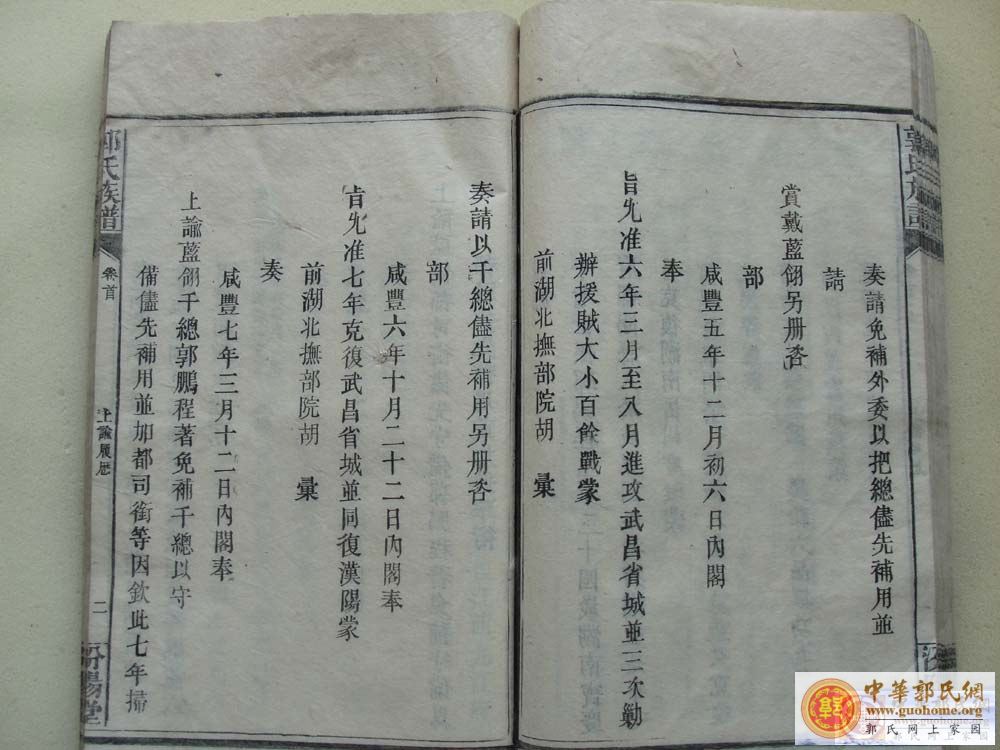 奏請免補外委以把總儘先補用並
請
賞戴藍翎另册咨
部
咸豐五年十二月初六日內閣
奉
旨允准六年三月至八月進攻武昌省城並三次勦
辦援賊大小百餘戰蒙
前湖北撫部院胡　彙
奏請以千總儘先補用另册咨
部
咸豐六年十月二十二日內閣奉
旨允准七年克復武昌省城並同復漢陽蒙
前湖北撫部院胡　彙
奏
咸豐七年三月十二日內閣奉
上諭藍翎千總郭鵬程著免補千總以守
備儘先補用並加都司銜等因欽此七年掃
郭氏族譜
卷首
上諭履歷
二
汾陽堂
郭氏族譜
中華郭氏網
www.guohome.org
郭氏网上家园